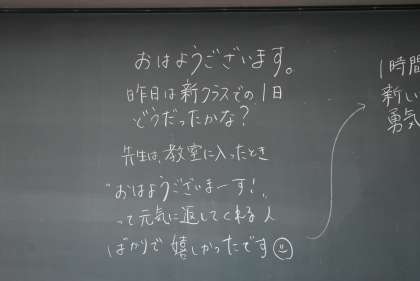 おはようございます。
昨日は新クラスでの1日
どうだったかな?
先生は、教室に入ったとき
"おはようございまーす!"
って元気に返してくれる人
ばかりで嬉しかったです
1時間
新しい
勇気